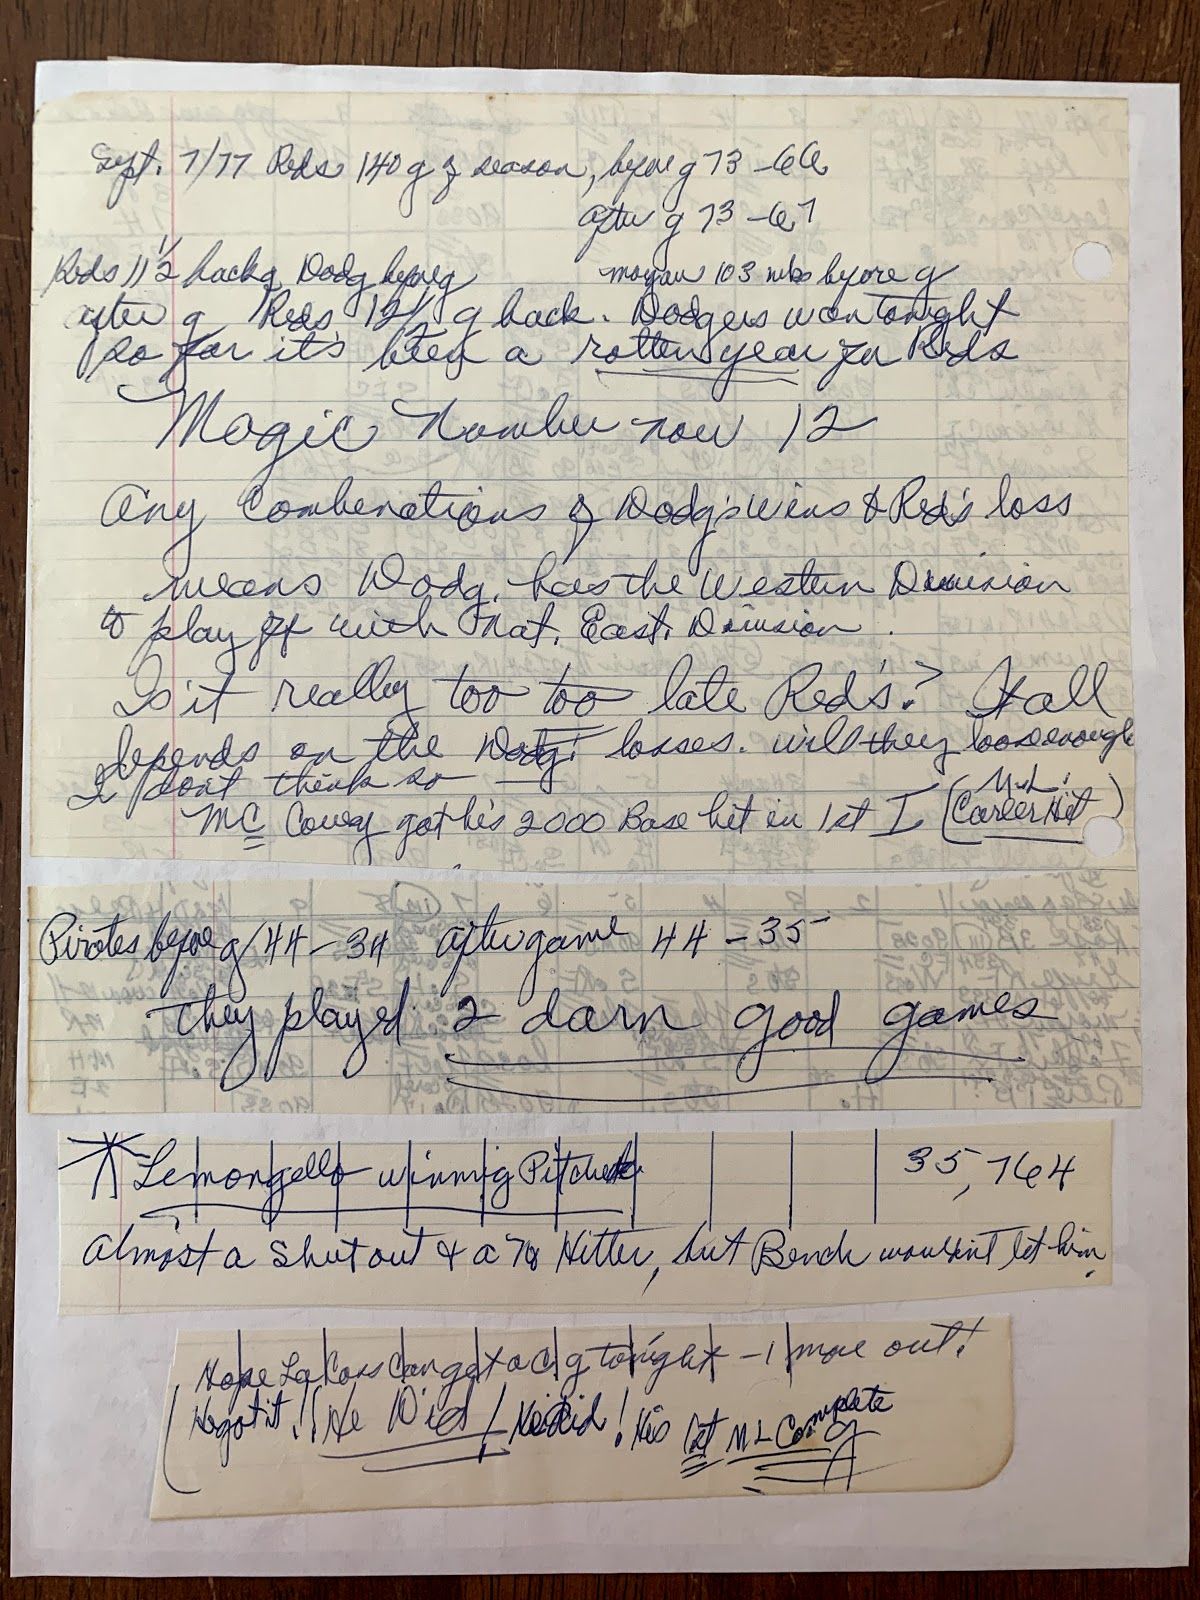 Sept. 7/77 Reds 140 g of season, before g 73-66
after g 73-67
Reds 11 1/2 back of Dodg before g
Morgan 103 rubs before g
after g Reds 12 1/2 g back. Dodgers won tonight
so far it's been a rotten year for Reds
Magic Number now 12
Any Combenations of Dodg's Wins & Red's loss
means Dodg. has the Western Division
to play off with Nat. East. Division.
Is it really too too late Red's? It all
depends on the Dodg. losses. will they loose enough
I don't think so
M.L.
Mc Covey got his 2000 Base hit in 1st I (Career Hit)
Pirates before g 44-34 after game 44-35
they played 2 darn good games
* Lemongello winning Pitcher 35,764
Almost a Shutout & a 7 Hitter, but Bench wouldn't let him.
Hope La Coss can get a C g tonight - 1 more out!
(He got it!! He Did! He did! His 1st M L Complete g